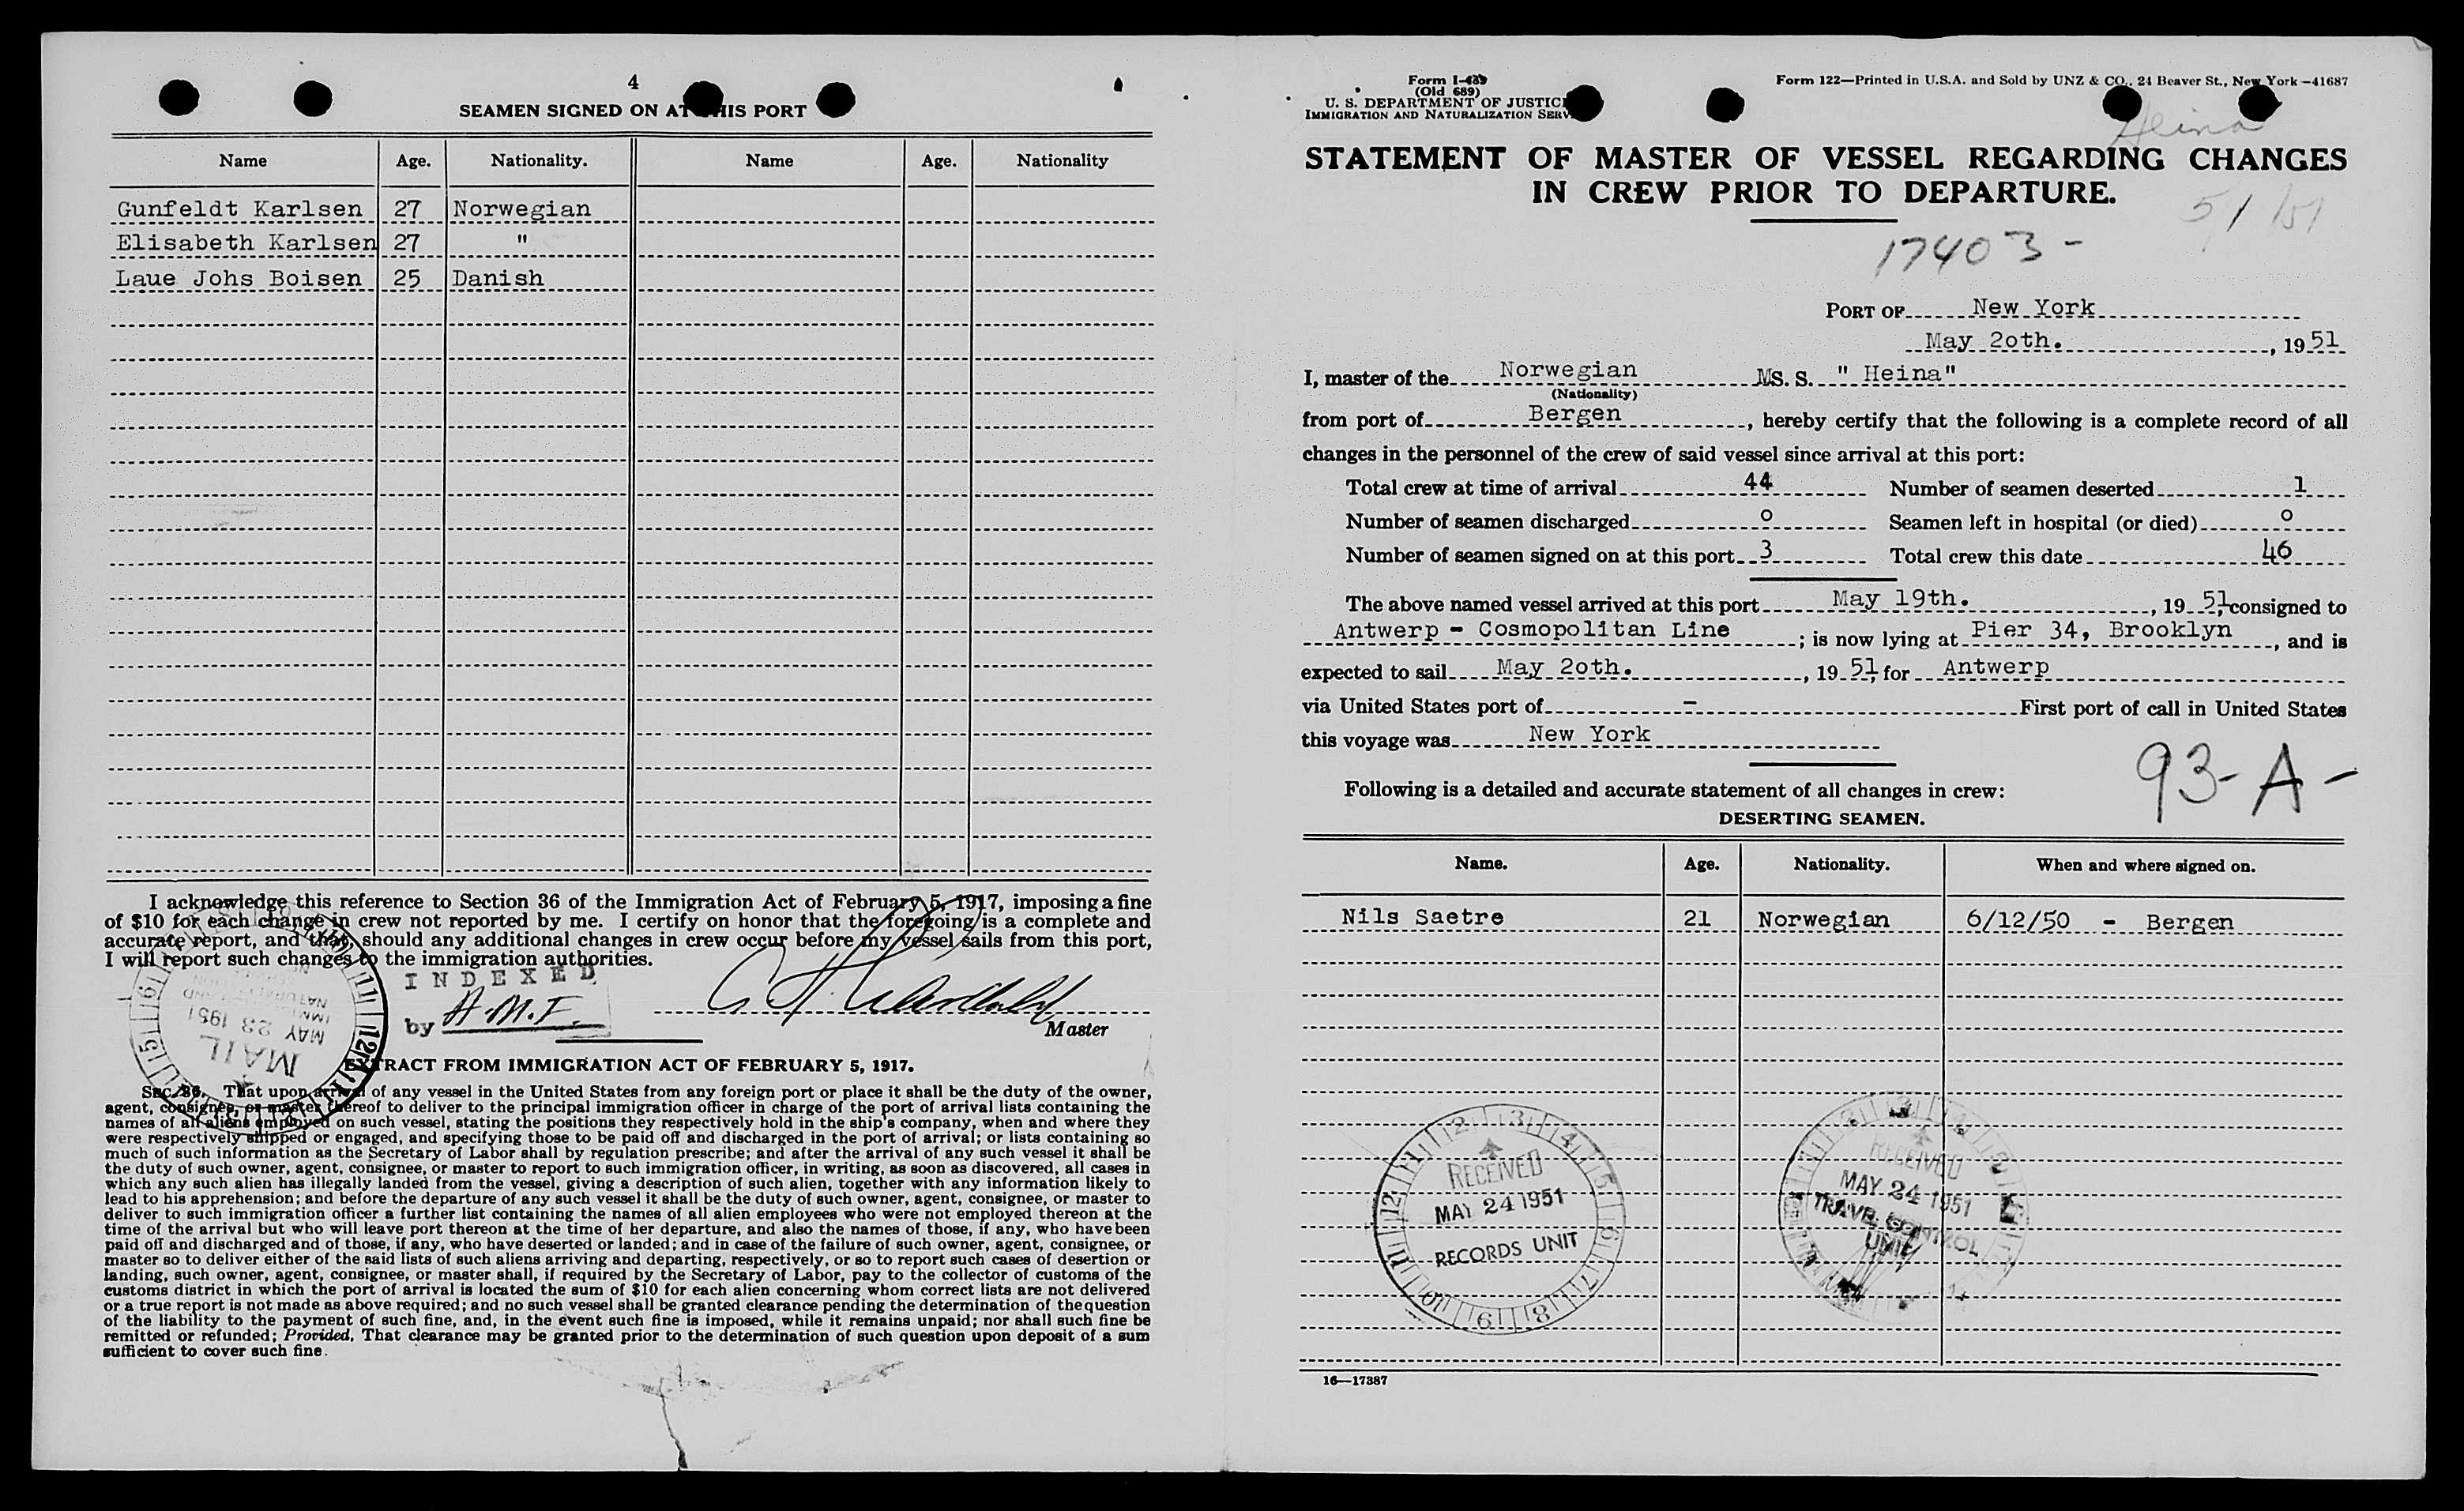 4
SEAMEN SIGNED ON AT THIS PORT
Name Age. Nationality. Name Age. Nationality
Gunfeldt Karlsen 27 Norwegian
Elisabeth Karlsen 27 "
Laue Johs Boisen 25 Danish
I acknowledge this reference to Section 36 of the Immigration Act of February 5, 1917, imposing a fine
of $10 for each change in crew not reported by me. I certify on honor that the foregoing is a complete and
accurate report, and that, should any additional changes in crew occur before my vessel sails from this port,
I will report such changes to the immigration authorities.
INDEXED
by A.M.F.
Master
MAIL
MAY 23 1951
EXTRACT FROM IMMIGRATION ACT OF FEBRUARY 5, 1917.
SEC. 36. That upon arrival of any vessel in the United States from any foreign port or place it shall be the duty of the owner,
agent, consignee, or master thereof to deliver to the principal immigration officer in charge of the port of arrival lists containing the
names of all aliens employed on such vessel, stating the positions they respectively hold in the ship's company, when and where they
were respectively shipped or engaged, and specifying those to be paid off and discharged in the port of arrival; or lists containing so
much of such information as the Secretary of Labor shall by regulation prescribe; and after the arrival of any such vessel it shall be
the duty of such owner, agent, consignee, or master to report to such immigration officer, in writing, as soon as discovered, all cases in
which any such alien has illegally landed from the vessel, giving a description of such alien, together with any information likely to
lead to his apprehension; and before the departure of any such vessel it shall be the duty of such owner, agent, consignee, or master to
deliver to such immigration officer a further list containing the names of all alien employees who were not employed thereon at the
time of the arrival but who will leave port thereon at the time of her departure, and also the names of those, if any, who have been
paid off and discharged and of those, if any, who have deserted or landed; and in case of the failure of such owner, agent, consignee, or
master so to deliver either of the said lists of such aliens arriving and departing, respectively, or so to report such cases of desertion or
landing, such owner, agent, consignee, or master shall, if required by the Secretary of Labor, pay to the collector of customs of the
customs district in which the port of arrival is located the sum of $10 for each alien concerning whom correct lists are not delivered
or a true report is not made as above required; and no such vessel shall be granted clearance pending the determination of the question
of the liability to the payment of such fine, and, in the event such fine is imposed, while it remains unpaid; nor shall such fine be
remitted or refunded; Provided, That clearance may be granted prior to the determination of such question upon deposit of a sum
sufficient to cover such fine.
Form I-489
(Old 689)
U. S. DEPARTMENT OF JUSTICE
IMMIGRATION AND NATURALIZATION SERV
Form 122—Printed in U.S.A. and Sold by UNZ & CO., 24 Beaver St., New York—41687
Heina
STATEMENT OF MASTER OF VESSEL REGARDING CHANGES
IN CREW PRIOR TO DEPARTURE.
17403-
PORT OF New York
May 2oth. , 1951
I, master of the Norwegian MS. S. " Heina"
(Nationality)
from port of Bergen , hereby certify that the following is a complete record of all
changes in the personnel of the crew of said vessel since arrival at this port:
Total crew at time of arrival 44 Number of seamen deserted 1
Number of seamen discharged o Seamen left in hospital (or died) o
Number of seamen signed on at this port 3 Total crew this date 46
The above named vessel arrived at this port May 19th. , 19 51, consigned to
Antwerp - Cosmopolitan Line ; is now lying at Pier 34, Brooklyn , and is
expected to sail May 2oth. , 19 51, for Antwerp
via United States port of - First port of call in United States
this voyage was New York
93-A-
Following is a detailed and accurate statement of all changes in crew:
DESERTING SEAMEN.
Name. Age. Nationality. When and where signed on.
Nils Saetre 21 Norwegian 6/12/50 - Bergen
RECEIVED
MAY 24 1951
RECORDS UNIT
RECEIVED
MAY 24 1951
TRAVEL CONTROL
UNIT
16—17387